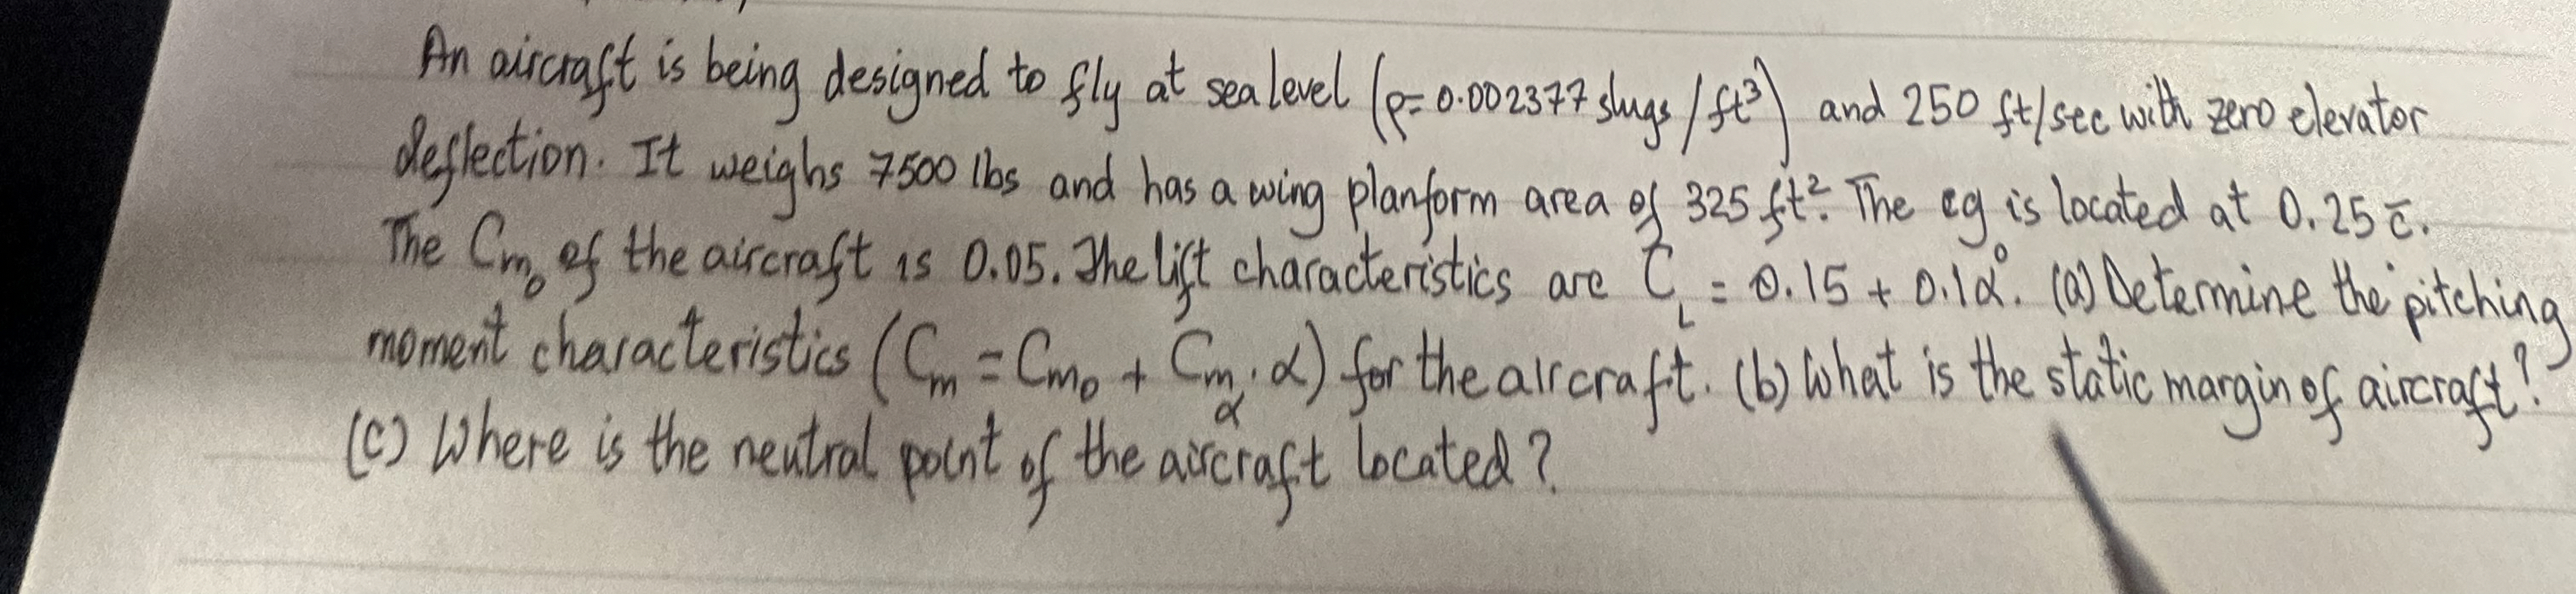 An aircraft is being designed to fly at sea level (ρ=0.002377 slugs/ft³) and 250 ft/sec with zero elevator
deflection. It weighs 7500 lbs and has a wing planform area of 325 ft². The cg is located at 0.25 c̄.
The Cm₀ of the aircraft is 0.05. The lift characteristics are C_L = 0.15 + 0.1α°. (a) Determine the pitching
moment characteristics (Cm = Cm₀ + Cm_α · α) for the aircraft. (b) What is the static margin of aircraft?
(c) Where is the neutral point of the aircraft located?